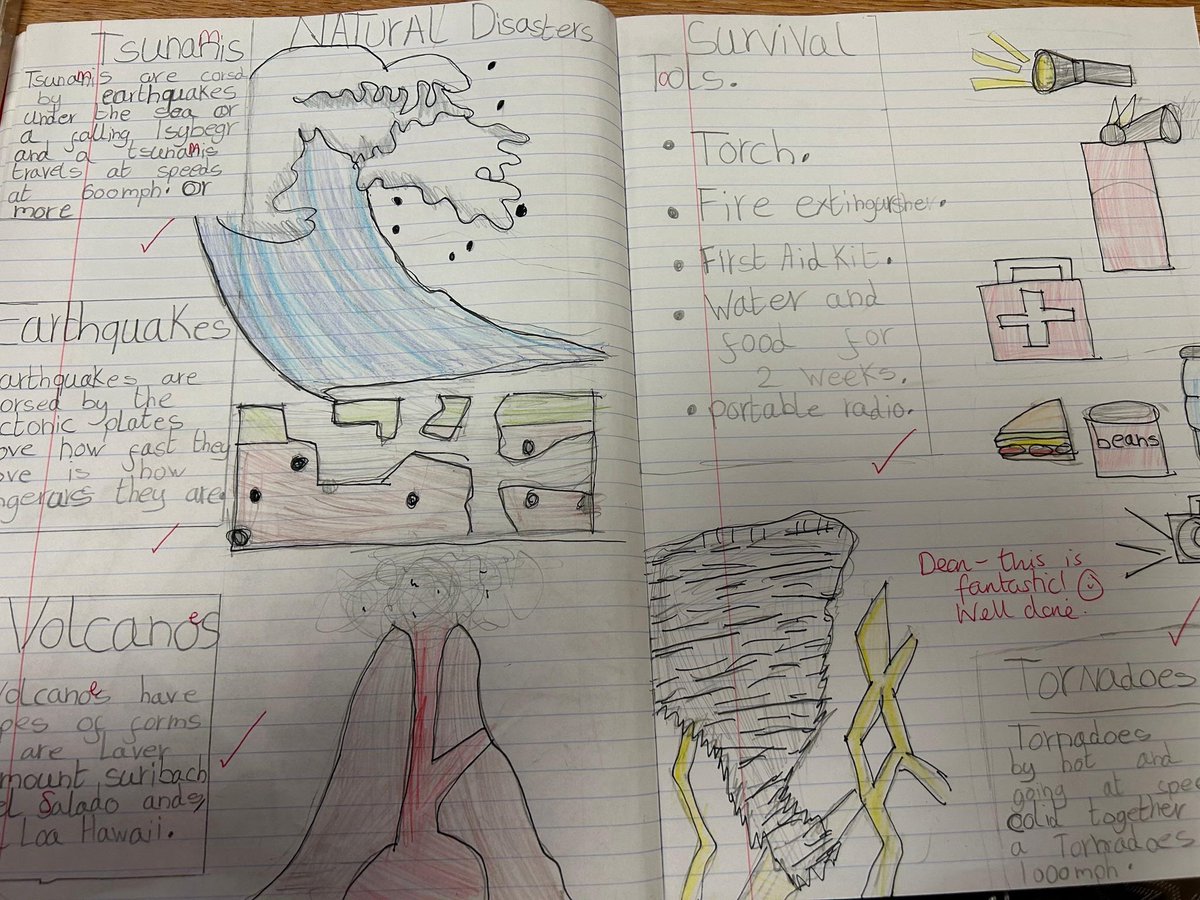 NATURAL Disasters
Tsunamis
Tsunamis are corsd
by earthquakes
under the sea or
a falling Isybegr
and a tsunamis
travels at speeds
at 600mph. or
more
Earthquakes
arthquakes are
orsed by the
ctonic plates
ove how fast they
ove is how
ngeraus they are.
Volcanoes
Volcanoes have
pes of forms
are Laver
mount suribach
el Salado andes
Loa Hawaii.
Survival
Tools.
• Torch.
• Fire extingursher.
• First Aid Kit.
• Water and
food for
2 weeks.
• portable radio.
beans
Dean - this is
fantastic! ☺
Well done.
Tornadoes
Tornadoes
by hot and
going at spee
colid together
a Tornadoes
1000mph.